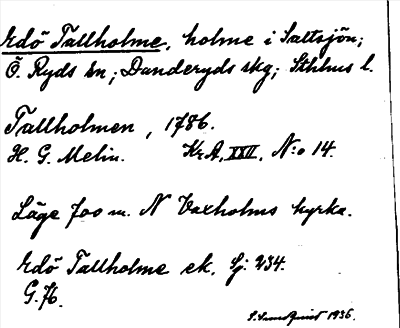 Edö Tallholme, holme i Saltsjön;
Ö. Ryds sn; Danderyds skg; Sthlms l.
Tallholmen, 1786.
H. G. Melin. Kr A, XXII, N:o 14.
Läge 700 m. N Vaxholms kyrka.
Edö Tallholme ek. Sj. 234.
G. 76.
S. Sundquist 1936.